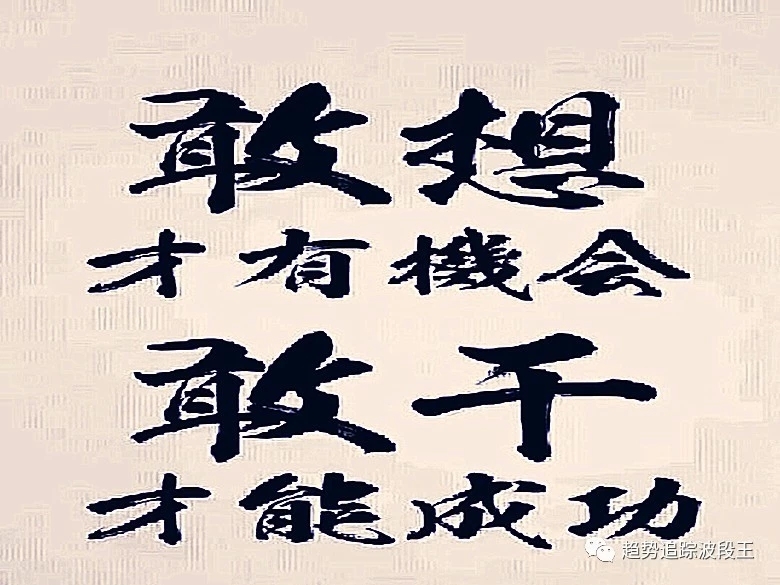 敢想
才有機会
敢干
才能成功
趋势追踪波段王